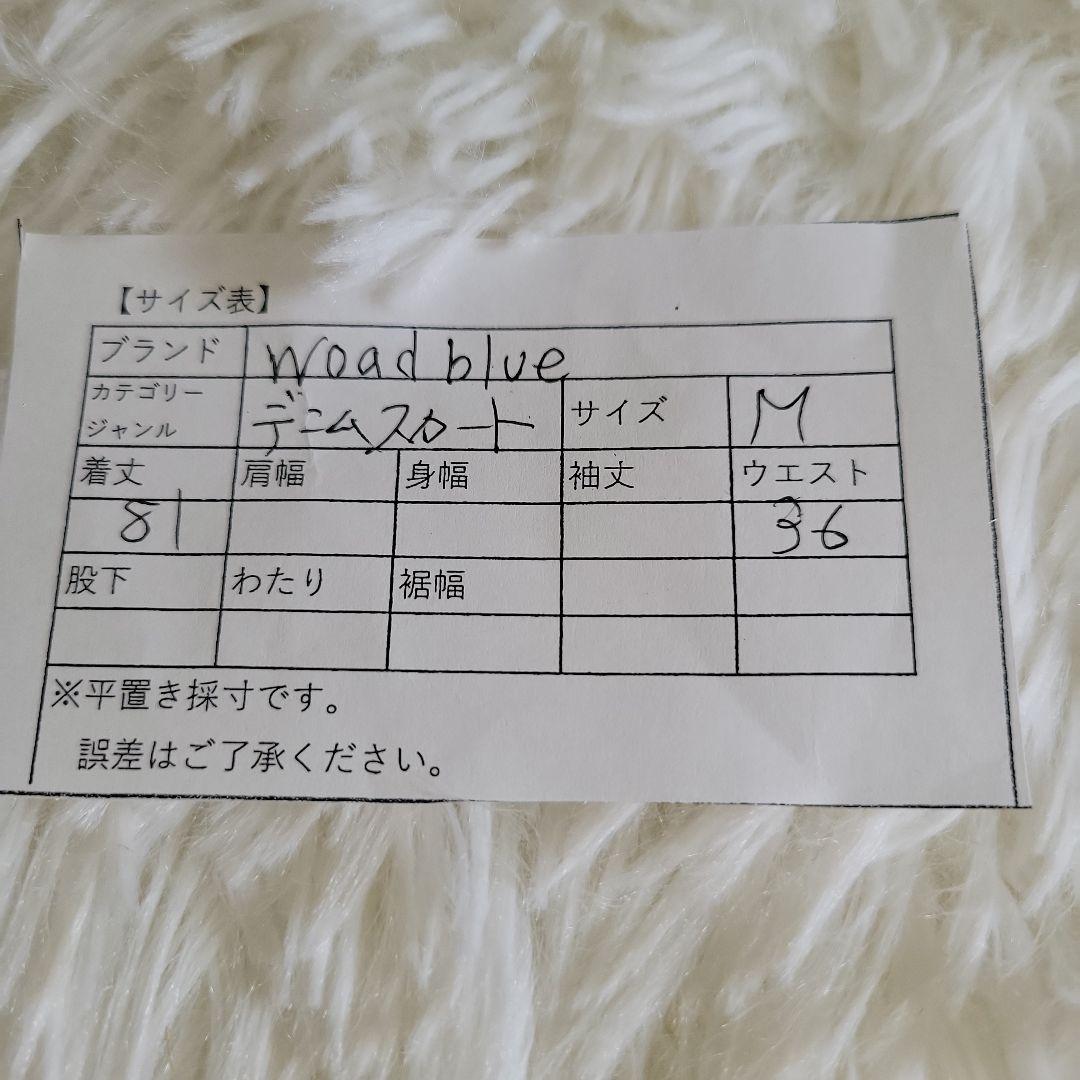 【サイズ表】
ブランド woad blue
カテゴリー
ジャンル デニムスカート サイズ M
着丈 肩幅 身幅 袖丈 ウエスト
81 36
股下 わたり 裾幅
※平置き採寸です。
誤差はご了承ください。